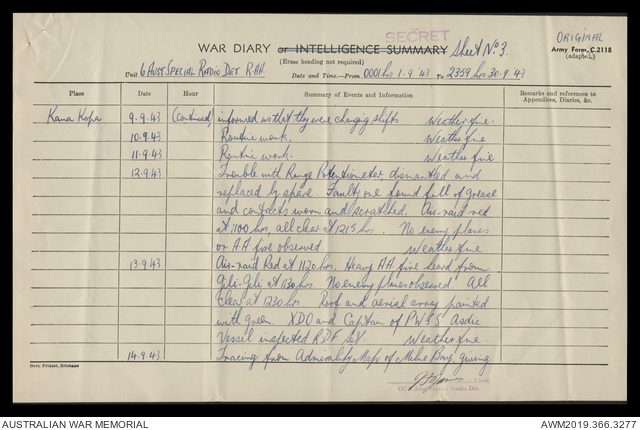 SECRET
ORIGINAL
WAR DIARY or INTELLIGENCE SUMMARY Sheet No 3.
Army Form, C.2118
(Erase heading not required)
(adapted.)
Unit 6 Aust. Special Radio Det R.AA
Date and Time.—From 0001 hrs 1-9-'43 To 2359 hrs 30-9-'43
Place Date Hour Summary of Events and Information Remarks and references to Appendices, Diaries, &c.
Kana Kopa 9.9.43 (Continued) informed us that they were changing shifts Weather fine.
10.9.43 Routine work. Weather fine
11.9.43 Routine work. Weather fine
12.9.43 Trouble with Range Potentiometer, dismantled and
replaced by spare. Faulty one found full of grease
and contacts worn and scratched. Air-raid red
at 1100 hrs, all clear at 1215 hrs. No enemy planes
or AA fire observed. Weather fine.
13.9.43 Air-raid Red at 1120 hrs. Heavy AA fire heard from
Gili-Gili at 1130 hrs. No enemy planes observed. All
Clear at 1230 hrs. Roof and aerial array painted
with green. XDO and Captain of PWSS Asdic
Vessel inspected RDF Set. Weather fine.
14.9.43 Tracing from Admiralty Map of Milne Bay, giving
Govt. Printer, Brisbane
Lieut.
OC Radio Det
AUSTRALIAN WAR MEMORIAL
AWM2019.366.3277